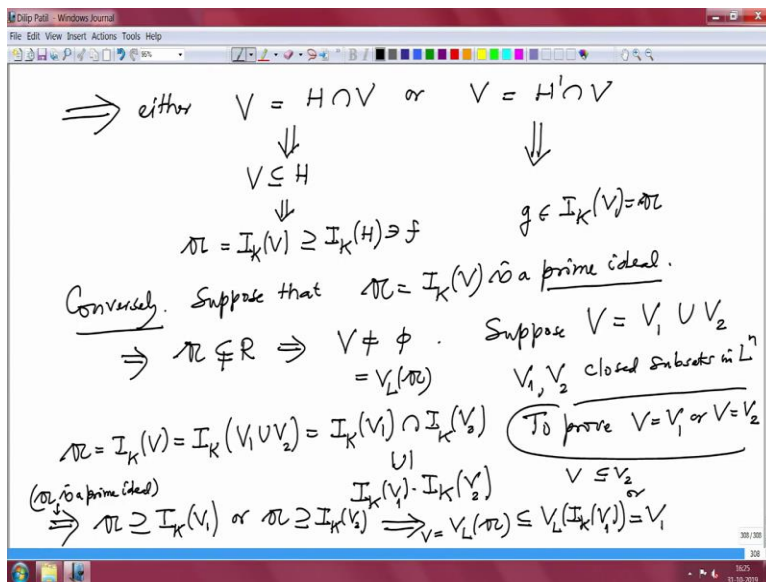 Dilip Patil - Windows Journal
File Edit View Insert Actions Tools Help
⟹ either V = H∩V or V = H'∩V
⇓ ⇓
V ⊆ H
⇓ g ∈ I_K(V) = 𝔄
𝔄 = I_K(V) ⊇ I_K(H) ∋ f
Conversely. Suppose that 𝔄 = I_K(V) is a prime ideal.
⇒ 𝔄 ⊊ R ⇒ V ≠ ϕ . Suppose V = V₁ ∪ V₂
= V_L(𝔄) V₁, V₂ closed subsets in Lⁿ
𝔄 = I_K(V) = I_K(V₁∪V₂) = I_K(V₁) ∩ I_K(V₂) To prove V=V₁ or V=V₂
∪| V ⊆ V₂
(𝔄 is a prime ideal) I_K(V₁)·I_K(V₂) or
⟹ 𝔄 ⊇ I_K(V₁) or 𝔄 ⊇ I_K(V₂) ⟹ V = V_L(𝔄) ⊆ V_L(I_K(V₁)) = V₁
308/308
308
16:25
31-10-2019